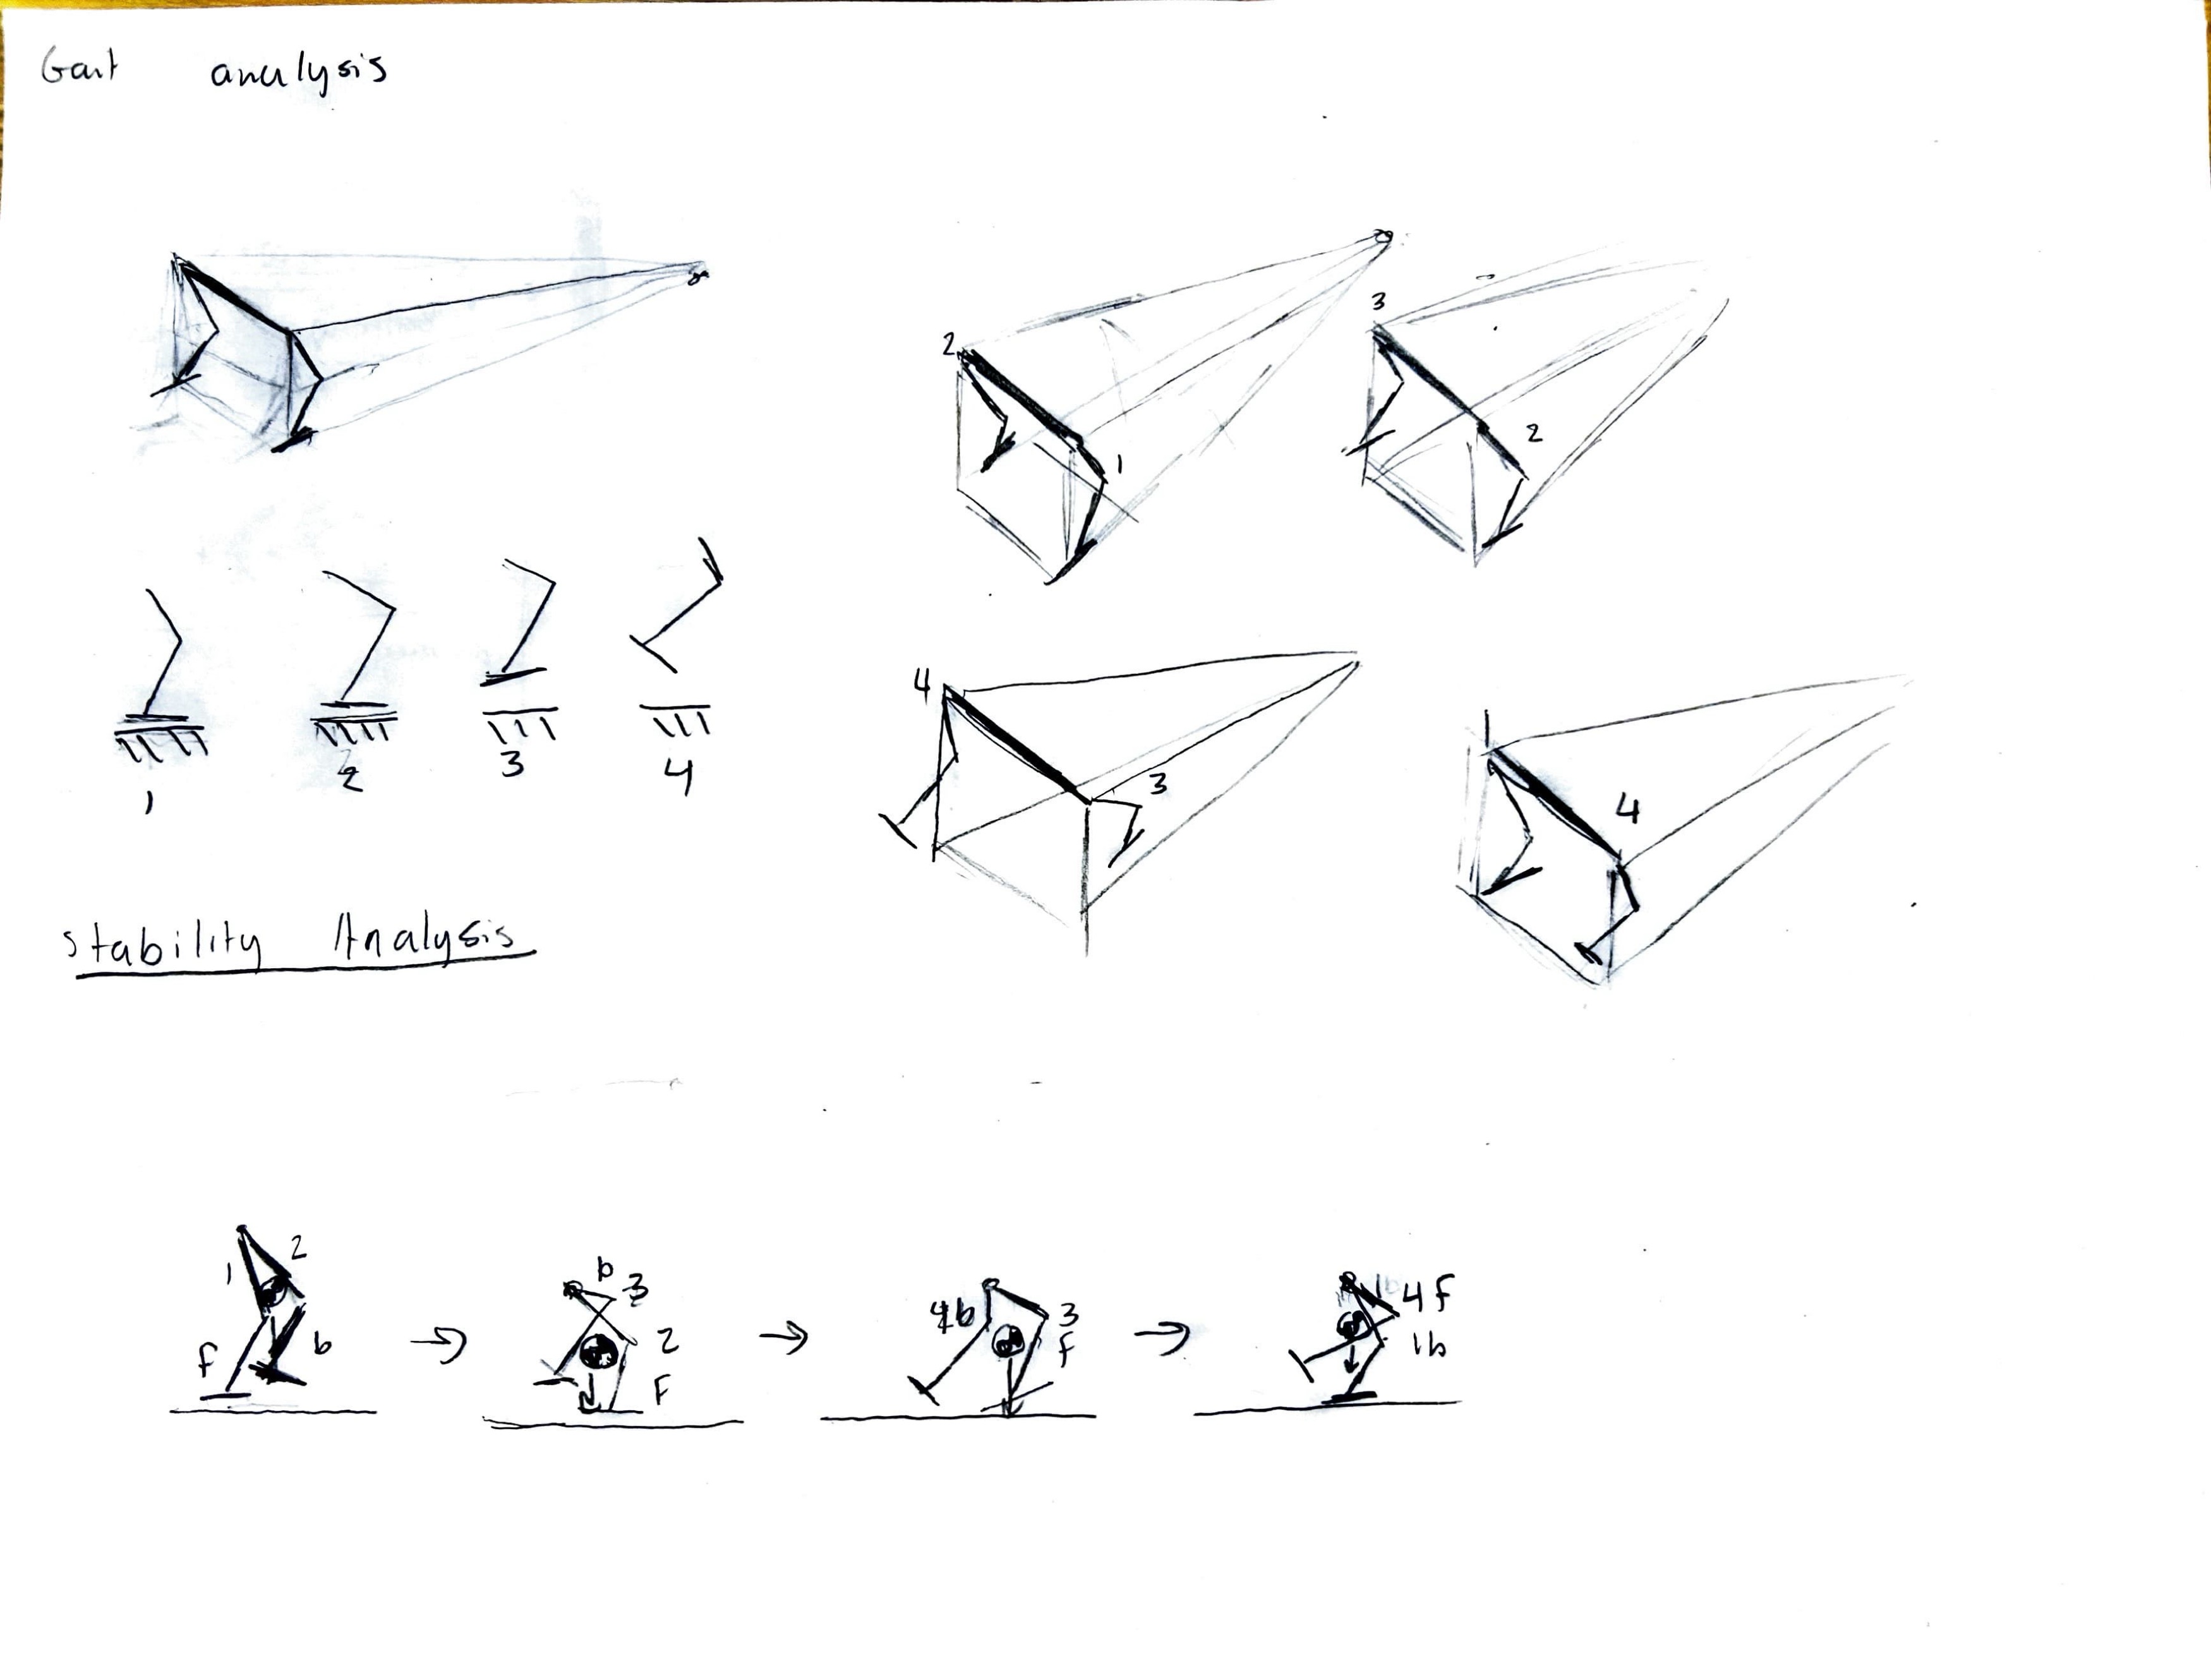 Gait analysis
2
3
1
2
1
2
3
4
4
3
4
Stability Analysis
1
2
f
b
b
3
2
F
4b
3
f
4 f
1b